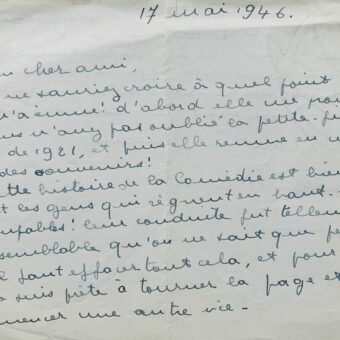 17 mai 1946.
cher ami,
ne sauriez croire à quel point
m'a émue! d'abord elle me prou
n'avez pas oublié la petite
de 1921, et puis elle remue en
des souvenirs!
histoire de la Comédie est bien
les gens qui règnent en haut-
coupables! leur conduite fut tellem
semblable qu'on ne sait que pe
faut effacer tout cela, et pour
suis prête à tourner la page et
mencer une autre vie.